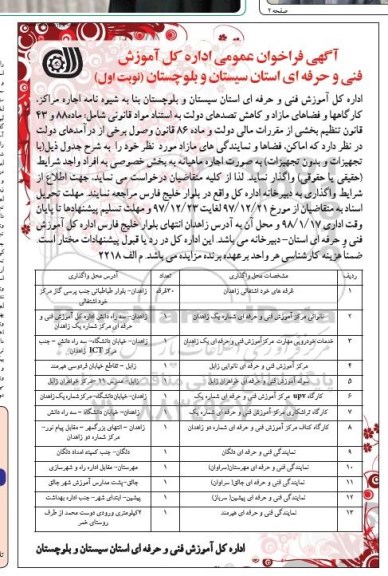 صفحه ۲
آگهی فراخوان عمومی اداره کل آموزش
فنی و حرفه ای استان سیستان و بلوچستان (نوبت اول)
اداره کل آموزش فنی و حرفه ای استان سیستان و بلوچستان بنا به شیوه نامه اجاره مراکز،
کارگاهها و فضاهای مازاد و کاهش تصدهای دولت به استناد مواد قانونی شامل: ماده۸۸ و ۴۳
قانون تنظیم بخشی از مقررات مالی دولت و ماده ۸۶ قانون وصول برخی از درآمدهای دولت
در نظر دارد که اماکن، فضاها و نمایندگی های مازاد مورد نظر خود را به شرح جدول ذیل(با
تجهیزات و بدون تجهیزات) به صورت اجاره ماهیانه به بخش خصوصی به افراد واجد شرایط
(حقیقی یا حقوقی) واگذار نماید. لذا از کلیه متقاضیان درخواست می نماید، جهت اطلاع از
شرایط واگذاری به دبیرخانه اداره کل واقع در بلوار خلیج فارس مراجعه نمایند. مهلت تحویل
اسناد به متقاضیان از مورخ ۹۷/۱۲/۲۱ لغایت ۹۷/۱۲/۲۳ و مهلت تسلیم پیشنهادها تا پایان
وقت اداری ۹۸/۱/۱۷ و محل آن به آدرس زاهدان انتهای بلوار خلیج فارس اداره کل آموزش
فنی و حرفه ای استان- دبیرخانه می باشد. این اداره کل در رد یا قبول پیشنهادات مختار است.
ضمناً هزینه کارشناسی هر واحد برعهده برنده مزایده می باشد. م الف ۲۲۱۸
ردیف مشخصات محل واگذاری تعداد آدرس محل واگذاری
۱ غرفه های خود اشتغالی زاهدان ۳۰غرفه زاهدان- بلوار طباطبائی جنب پرسی گاز مرکز خود اشتغالی
۲ نانوائی مرکز آموزش فنی و حرفه ای شماره یک زاهدان ۱ زاهدان- سه راه دانش اداره کل آموزش فنی و حرفه ای مرکز شماره یک زاهدان
۳ خدمات خودرویی مهارت مرکز آموزش فنی و حرفه ای یک زاهدان ۱ زاهدان- خیابان دانشگاه- سه راه دانش – جنب مرکز ICT زاهدان
۴ مرکز آموزش فنی و حرفه ای نانوایی زابل ۱ زابل – تقاطع خیابان فردوسی هیرمند
۵ سوله آموزش فنی و حرفه ای خواهران زابل ۱ زابل- مدرس ۱۱ -مرکز خواهران زابل
۶ کارگاه upv مرکز آموزش فنی و حرفه ای شماره یک ۱ زاهدان- خیابان دانشگاه- مرکز شماره یک
۷ کارگاه تراشکاری مرکز آموزش فنی و حرفه ای شماره یک ۱ زاهدان- خیابان دانشگاه – سه راه دانش
۸ کارگاه کناف مرکز آموزش فنی و حرفه ای شماره دو زاهدان ۱ زاهدان – انتهای بزرگمهر – مقابل پیام نور- مرکز شماره دو زاهدان
۹ نمایندگی فنی و حرفه ای دلگان ۱ دلگان- جنب کمیته امداد دلگان
۱۰ نمایندگی فنی و حرفه ای مهرستان(سراوان) ۱ مهرستان- مقابل اداره راه و شهرسازی
۱۱ نمایندگی فنی و حرفه ای جالق(سراوان) ۱ جالق-پشت مدارس آموزش شهر جالق
۱۲ نمایندگی فنی و حرفه ای پیشین( سرباز) ۱ پیشین- ابتدای شهر- جنب اداره بهداشت
۱۳ نمایندگی فنی و حرفه ای هیرمند ۱ ۲کیلومتری ورودی دوست محمد از طرف روستای خمر
اداره کل آموزش فنی و حرفه ای استان سیستان و بلوچستان